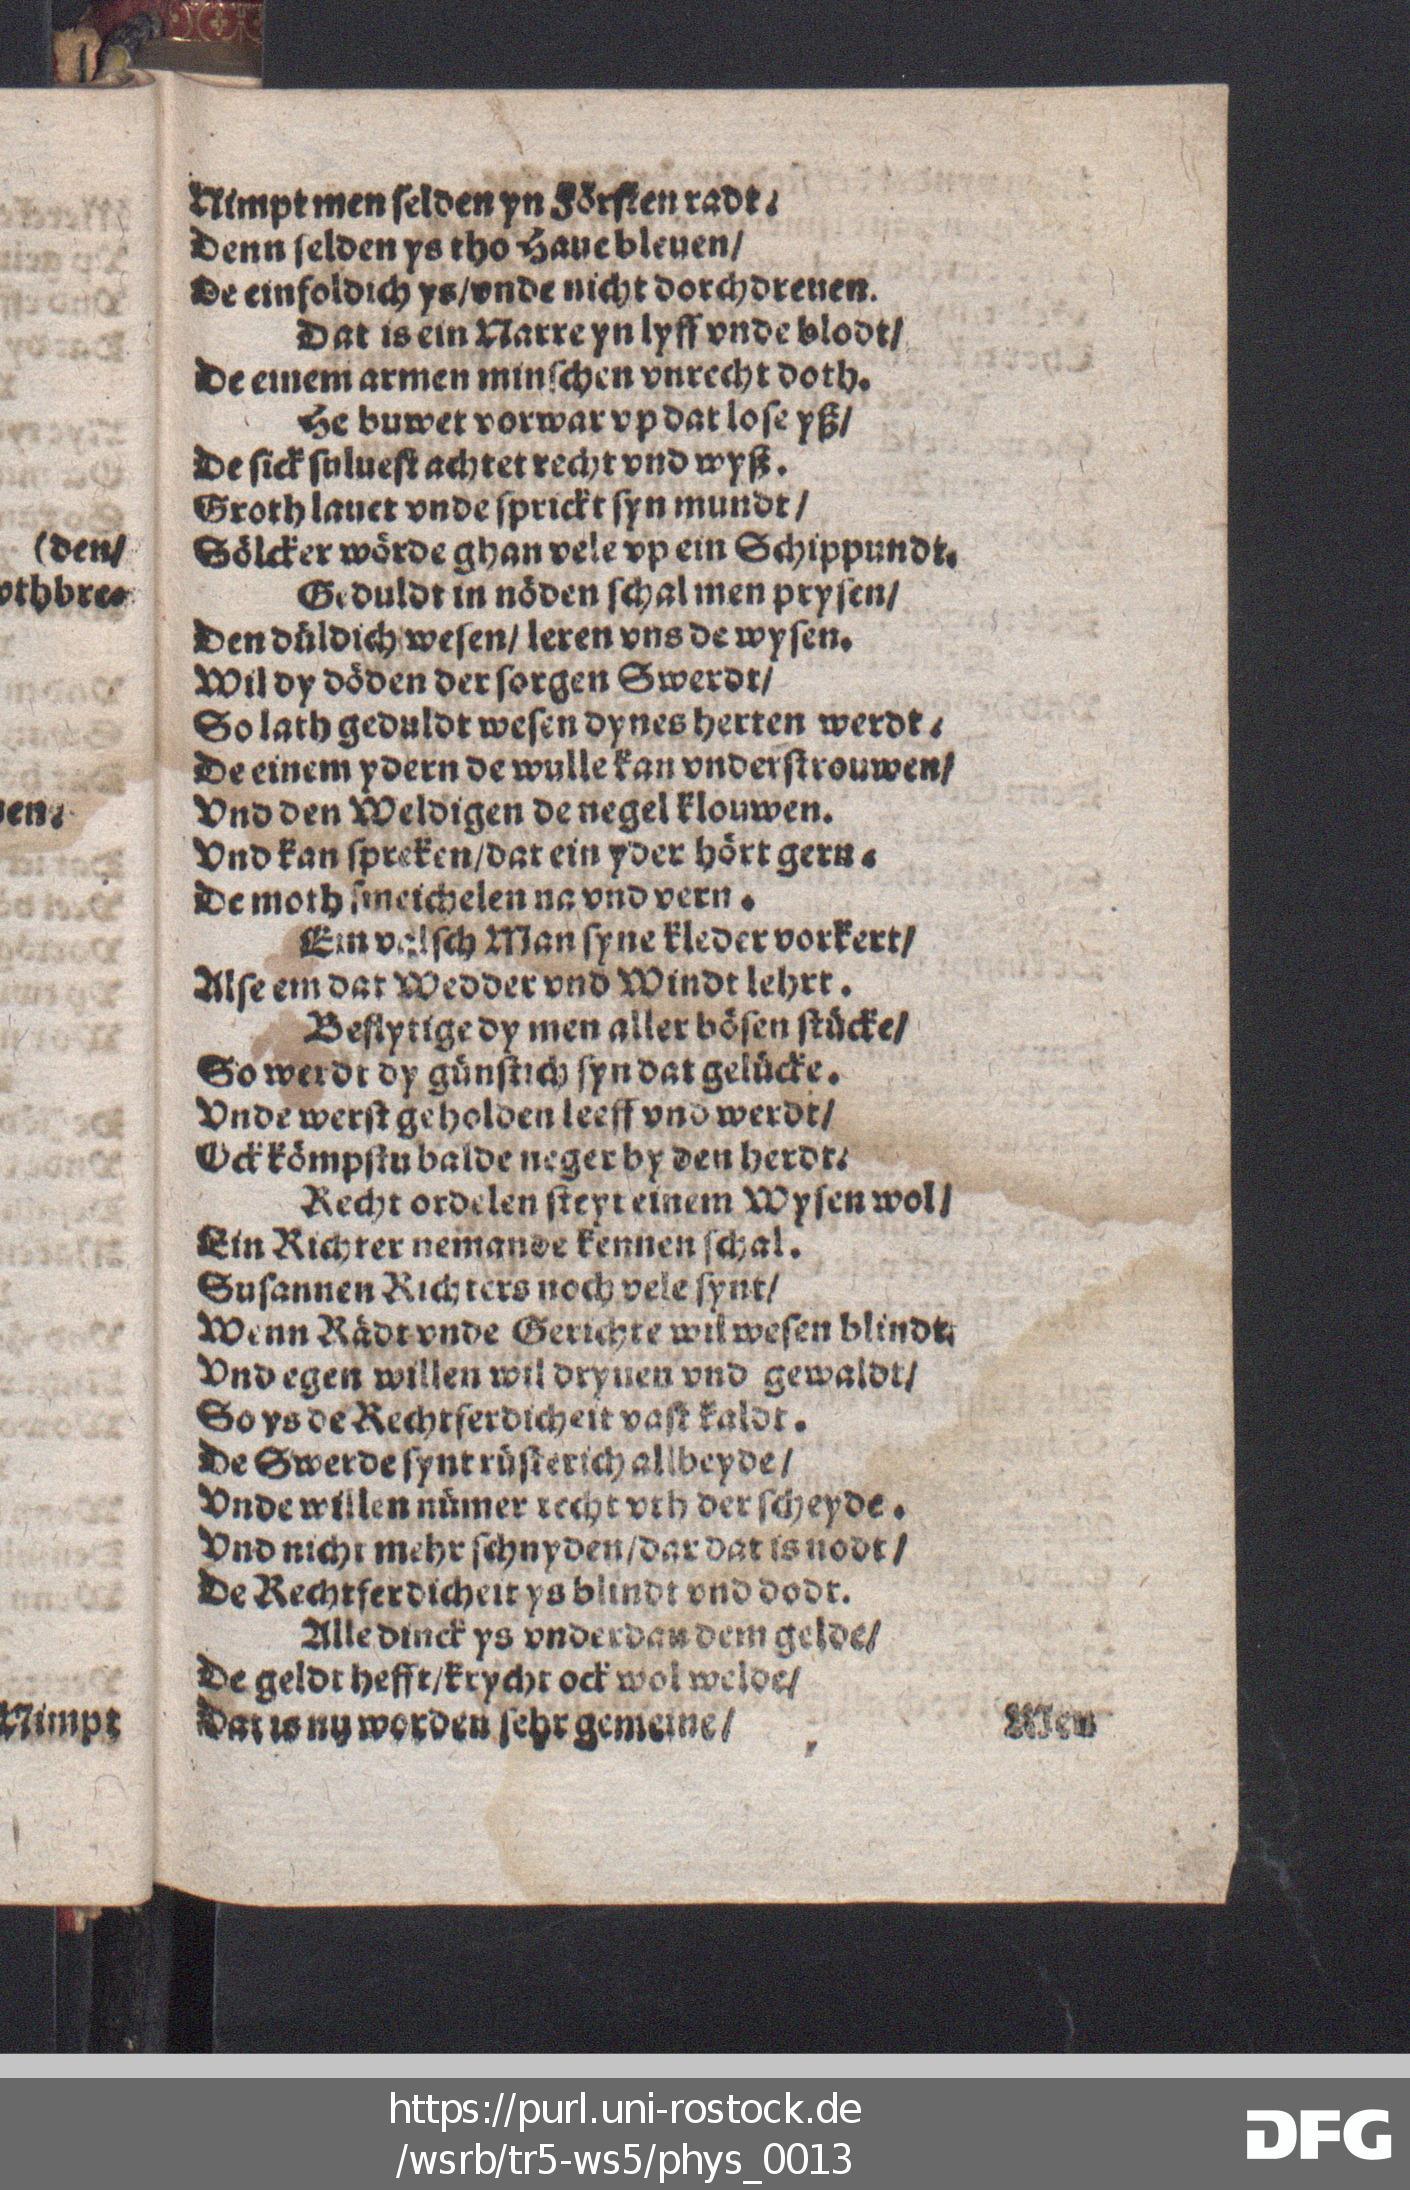 (den/
vthbre⸗
uen.
Nimpt
Nimpt men selden yn Försten radt.
Denn selden ys tho Haue bleuen/
De einfoldich ys/vnde nicht dorchdreuen.
Dat is ein Narre yn lyff vnde blodt/
De einem armen minschen vnrecht doth.
He buwet vorwar vp dat lose yß/
De sick suluest achtet recht vnd wyß.
Groth lauet vnde sprickt syn mundt/
Sölcker wörde ghan vele vp ein Schippundt.
Geduldt in nöden schal men prysen/
Den düldich wesen/ leren vns de wysen.
Wil dy döden der sorgen Swerdt/
So lath geduldt wesen dynes herten werdt.
De einem ydern de wulle kan vnderstrouwen/
Vnd den Weldigen de negel klouwen.
Vnd kan spreken/dat ein yder hört gern.
De moth smeichelen na vnd vern.
Ein valsch Man syne kleder vorkert/
Alse em dat Wedder vnd Windt lehrt.
Beflytige dy men aller bösen stücke/
So werdt dy günstich syn dat gelücke.
Vnde werst geholden leeff vnd werdt/
Ock kömpstu balde neger by den herdt.
Recht ordelen steyt einem Wysen wol/
Ein Richter nemande kennen schal.
Susannen Richters noch vele synt/
Wenn Rädt vnde Gerichte wil wesen blindt.
Vnd egen willen wil dryuen vnd gewaldt/
So ys de Rechtferdicheit vast kaldt.
De Swerde synt rüsterich allbeyde/
Vnde willen nümer recht vth der scheyde.
Vnd nicht mehr schnyden/dar dat is nodt/
De Rechtferdicheit ys blindt vnd dodt.
Alle dinck ys vnderdan dem gelde/
De geldt hefft/krycht ock wol welde/
Dat is nu worden sehr gemeine/
Men
https://purl.uni-rostock.de
/wsrb/tr5-ws5/phys_0013
DFG